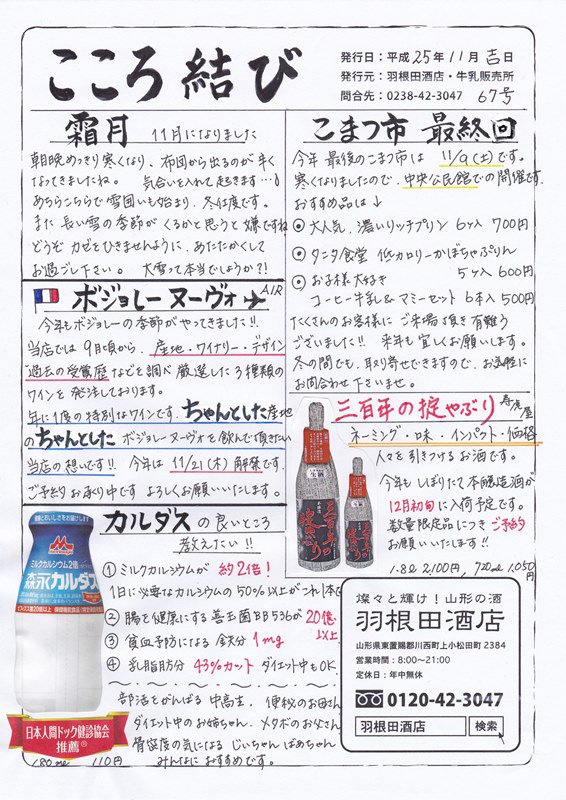 こころ結び
発行日：平成25年11月吉日
発行元：羽根田酒店・牛乳販売所
問合先：0238-42-3047 67号
霜月 11月になりました
朝晩めっきり寒くなり、布団から出るのが辛く
なってきましたね。 気合いを入れて起きます…♪
あちらこちらで雪囲いも始まり、冬仕度です。
また長い雪の季節がくるかと思うと嫌ですね
どうぞ カゼをひきませんように、あたたかくして
お過ごし下さい。 大雪って本当でしょうか?!
こまつ市 最終回
今年最後のこまつ市は 11/9(土)です。
寒くなりましたので、中央公民館での開催です。
おすすめ品は↓
◎大人気、濃いリッチプリン 6ヶ入 700円
◎タニタ食堂 低カロリーかぼちゃぷりん
5ヶ入 600円
◎お子様大好き
コーヒー牛乳&マミーセット 6本入 500円
たくさんのお客様に ご来場頂き有難う
ございました!! 来年も宜しくお願いします。
冬の間でも、取り寄せできますので、お気軽に
お問合わせ下さいませ。
ボジョレーヌーヴォ AIR
今年もボジョレーの季節がやってきました!!
当店では 9月頃から、産地・ワイナリー・デザイン
過去の受賞歴などを調べ 厳選した3種類の
ワインを発注しております。
年に1度の特別なワインです、ちゃんとした産地
のちゃんとした ボジョレーヌーヴォを飲んで頂きたい
当店の想いです!! 今年は 11/21(木)解禁です。
ご予約お承り中です よろしくお願いいたします。
三百年の掟やぶり 寿虎屋
ネーミング・味・インパクト・価格
人々を引きつけるお酒です。
今年もしぼりたて本醸造酒が
12月初旬に入荷予定です。
数量限定品につき ご予約
お願いいたします!!
1.8ℓ 2,100円 720mℓ 1,050円
生酒
三百年の掟やぶり
カルダスの良いところ
教えたい!!
①ミルクカルシウムが 約2倍!
1日に必要なカルシウムの50%以上がこれ1本
②腸を健康にする善玉菌BB536が20億以上
③貧血予防になる 鉄分 1mg
④乳脂肪分 43%カット ダイエット中もOK
部活をがんばる 中高生、便秘のお母さん
ダイエット中のお姉ちゃん、メタボのお父さん
骨密度の気になる じいちゃん ばあちゃん
みんなに おすすめです。
ミルクカルシウム2倍
森永カルダス
日本人間ドック健診協会
推薦®
180mℓ 110円
燦々と輝け！山形の酒
羽根田酒店
山形県東置賜郡川西町上小松田町2384
営業時間：8:00〜21:00
定休日：年中無休
0120-42-3047
羽根田酒店 検索